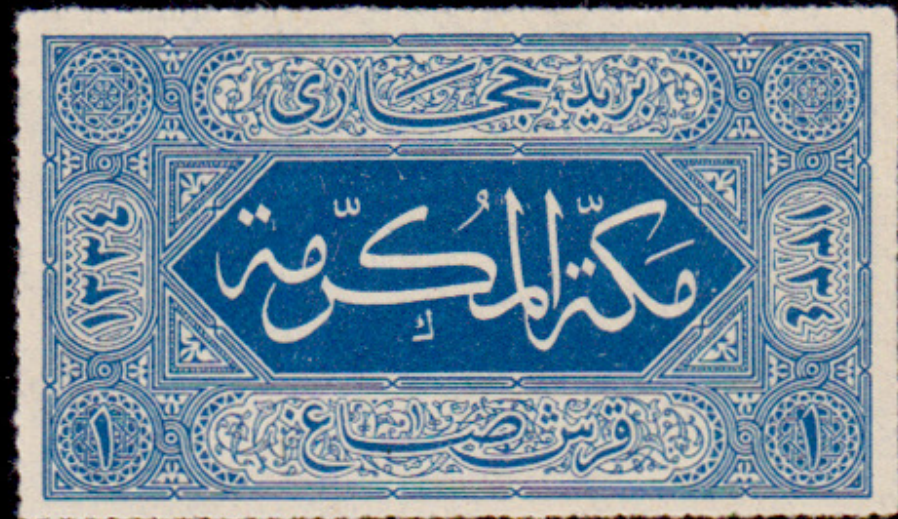 بريد حجازى
١٣٣٤
مكّة المكُرّمة
١٣٣٤
ك
١
قرش صاغ
١